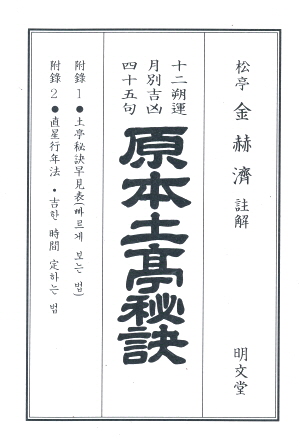 松亭 金赫濟 註解
明文堂
十二朔運
月別吉凶
四十五句
原本土亭秘訣
附錄 1 ● 土亭秘訣早見表(빠르게 보는 법)
附錄 2 ● 直星行年法 · 吉한 時間 定하는 법